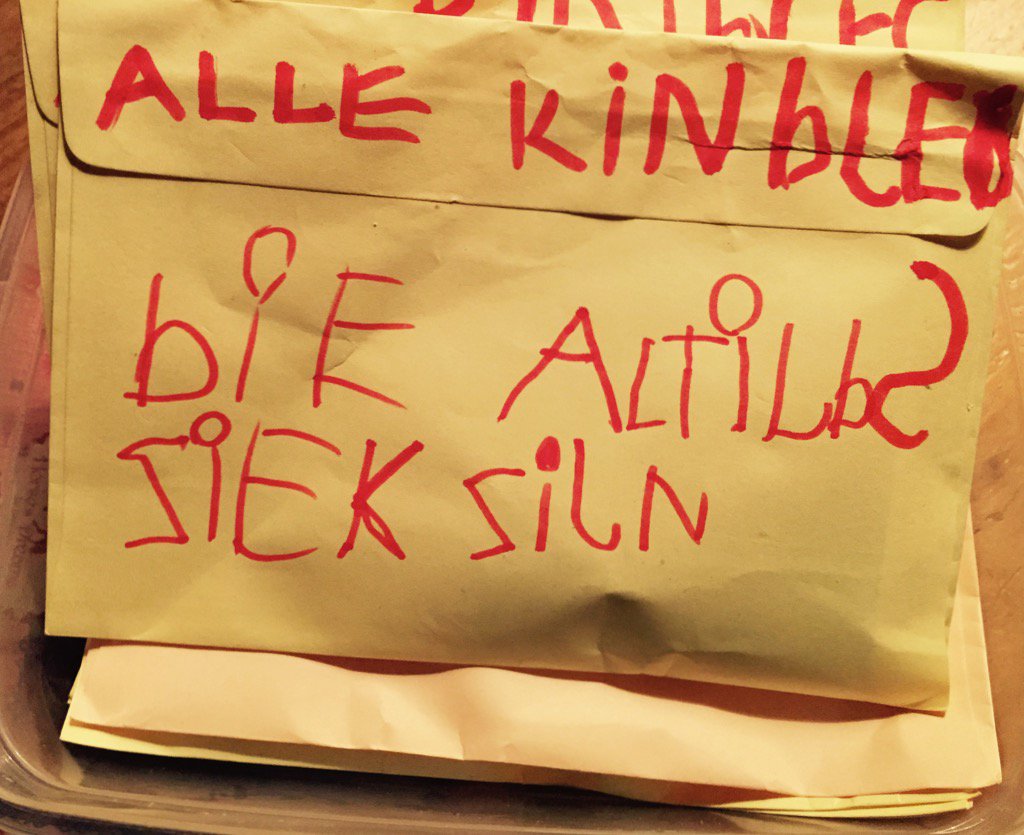 ALLE KiNbLED
biE ALTiLbS
SiEK SiLN